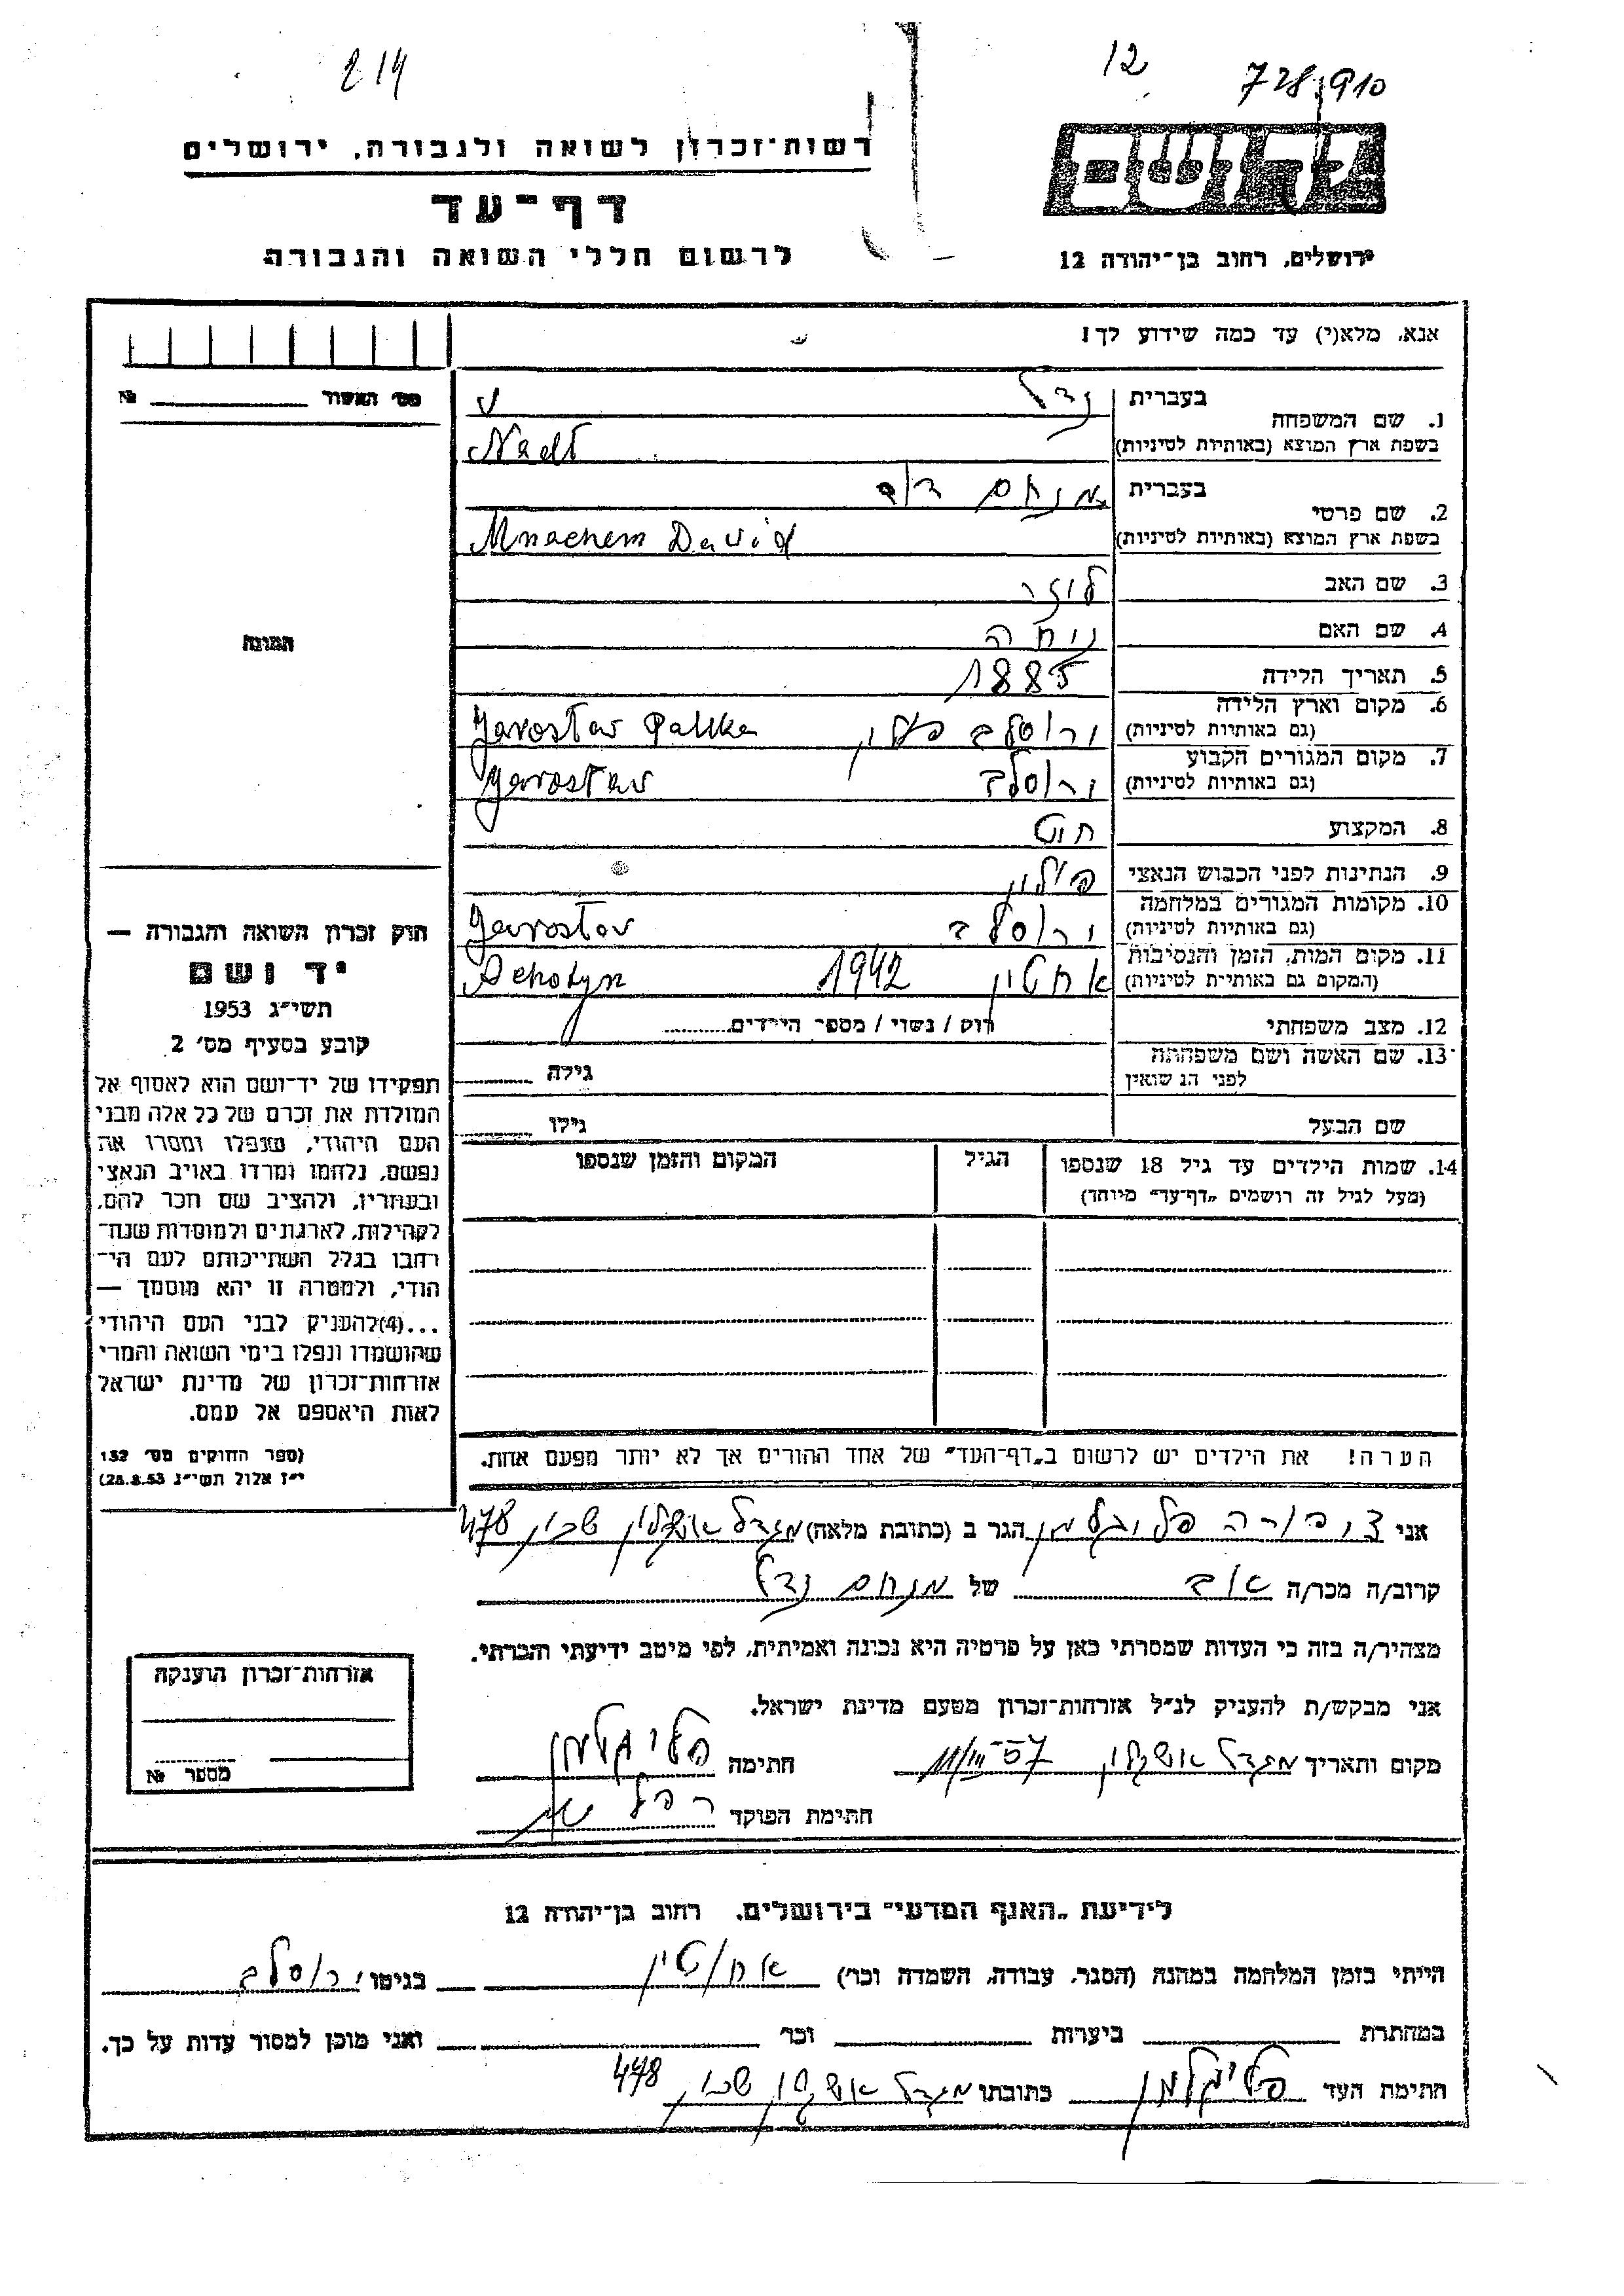 214
12
728,910
רשות־זכרון לשואה ולגבורה, ירושלים
דף־עד
לרשום חללי השואה והגבורה
ירושלים, רחוב בן־יהודה 12
אנא, מלא(י) עד כמה שידוע לך!
מס׳ האשור № 
1. שם המשפחה
בעברית נדל
בשפת ארץ המוצא (באותיות לטיניות) Nadl
2. שם פרטי
בעברית מנחם דוד
בשפת ארץ המוצא (באותיות לטיניות) Mnachem David
3. שם האב לוזר
4. שם האם
5. תאריך הלידה 1885
6. מקום וארץ הלידה
(גם באותיות לטיניות) ירוסלב פולין Jaroslav
7. מקום המגורים הקבוע
(גם באותיות לטיניות) ירוסלב Jaroslav
8. המקצוע
9. הנתינות לפני הכבוש הנאצי פולין
10. מקומות המגורים במלחמה
(גם באותיות לטיניות) ירוסלב Jaroslav
11. מקום המות, הזמן והנסיבות
(המקום גם באותיות לטיניות) אחטין 1942
12. מצב משפחתי רוק / נשוי / מספר הילדים
13. שם האשה ושם משפחתה
לפני הנשואין גילה
שם הבעל גילו
14. שמות הילדים עד גיל 18 שנספו
(מעל לגיל זה רושמים „דף־עד״ מיוחד)
הגיל
המקום והזמן שנספו
הערה! את הילדים יש לרשום ב„דף־העד״ של אחד ההורים אך לא יותר מפעם אחת.
התמונה
חוק זכרון השואה והגבורה —
יד ושם
תשי״ג 1953
קובע בסעיף מס׳ 2
תפקידו של יד־ושם הוא לאסוף אל
המולדת את זכרם של כל אלה מבני
העם היהודי, שנפלו ומסרו את
נפשם, נלחמו ומרדו באויב הנאצי
ובעוזריו, ולהציב שם וזכר להם,
לקהילות, לארגונים ולמוסדות שנח־
רבו בגלל השתייכותם לעם הי־
הודי, ולמטרה זו יהא מוסמך —
...(4)להעניק לבני העם היהודי
שהושמדו ונפלו בימי השואה והמרי
אזרחות־זכרון של מדינת ישראל
לאות היאספם אל עמם.
(ספר החוקים מס׳ 132
י״ז אלול תשי״ג 28.8.53)
אני צפורה פליגלמן הגר ב (כתובת מלאה) מגדל אשקלון שכון 478
קרוב/ה מכר/ה אב של מנחם נדל
מצהיר/ה בזה כי העדות שמסרתי כאן על פרטיה היא נכונה ואמיתית, לפי מיטב ידיעתי והכרתי.
אני מבקש/ת להעניק לנ״ל אזרחות־זכרון מטעם מדינת ישראל.
מקום ותאריך מגדל אשקלון 11/III-57 חתימה פליגלמן
חתימת הפוקד
אזרחות־זכרון הוענקה
מספר №
לידיעת „האגף המדעי״ בירושלים, רחוב בן־יהודה 12
הייתי בזמן המלחמה במחנה (הסגר, עבודה, השמדה וכו׳) אחוטין בגיטו ירוסלב
במחתרת ביערות וכו׳ ואני מוכן למסור עדות על כך.
חתימת העד פליגלמן כתובתו מגדל אשקלון שכון 478